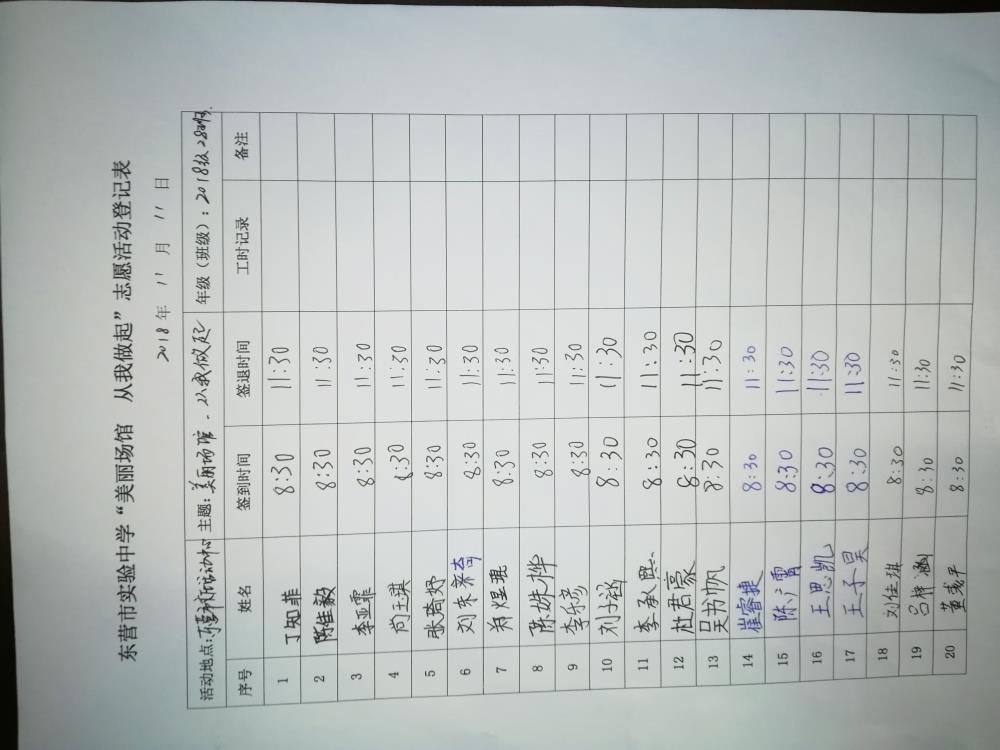 东营市实验中学“美丽场馆 从我做起”志愿活动登记表
2018 年 11 月 11 日
活动地点: 活动中心 主题: 美丽场馆、从我做起 年级（班级）: 2018级28班
序号 姓名 签到时间 签退时间 工时记录 备注
1 丁知菲 8:30 11:30
2 陈佳毅 8:30 11:30
3 李亚霏 8:30 11:30
4 尚玉琪 8:30 11:30
5 张琦妤 8:30 11:30
6 刘东 奇 8:30 11:30
7 郑煜琨 8:30 11:30
8 陈姝桦 8:30 11:30
9 李乐彦 8:30 11:30
10 刘子涵 8:30 11:30
11 李承熙 8:30 11:30
12 杜君豪 8:30 11:30
13 吴书帆 8:30 11:30
14 崔睿捷 8:30 11:30
15 陈广霄 8:30 11:30
16 王思凯 8:30 11:30
17 王子昊 8:30 11:30
18 刘佳琪 8:30 11:30
19 吕梓涵 8:30 11:30
20 黄彧平 8:30 11:30